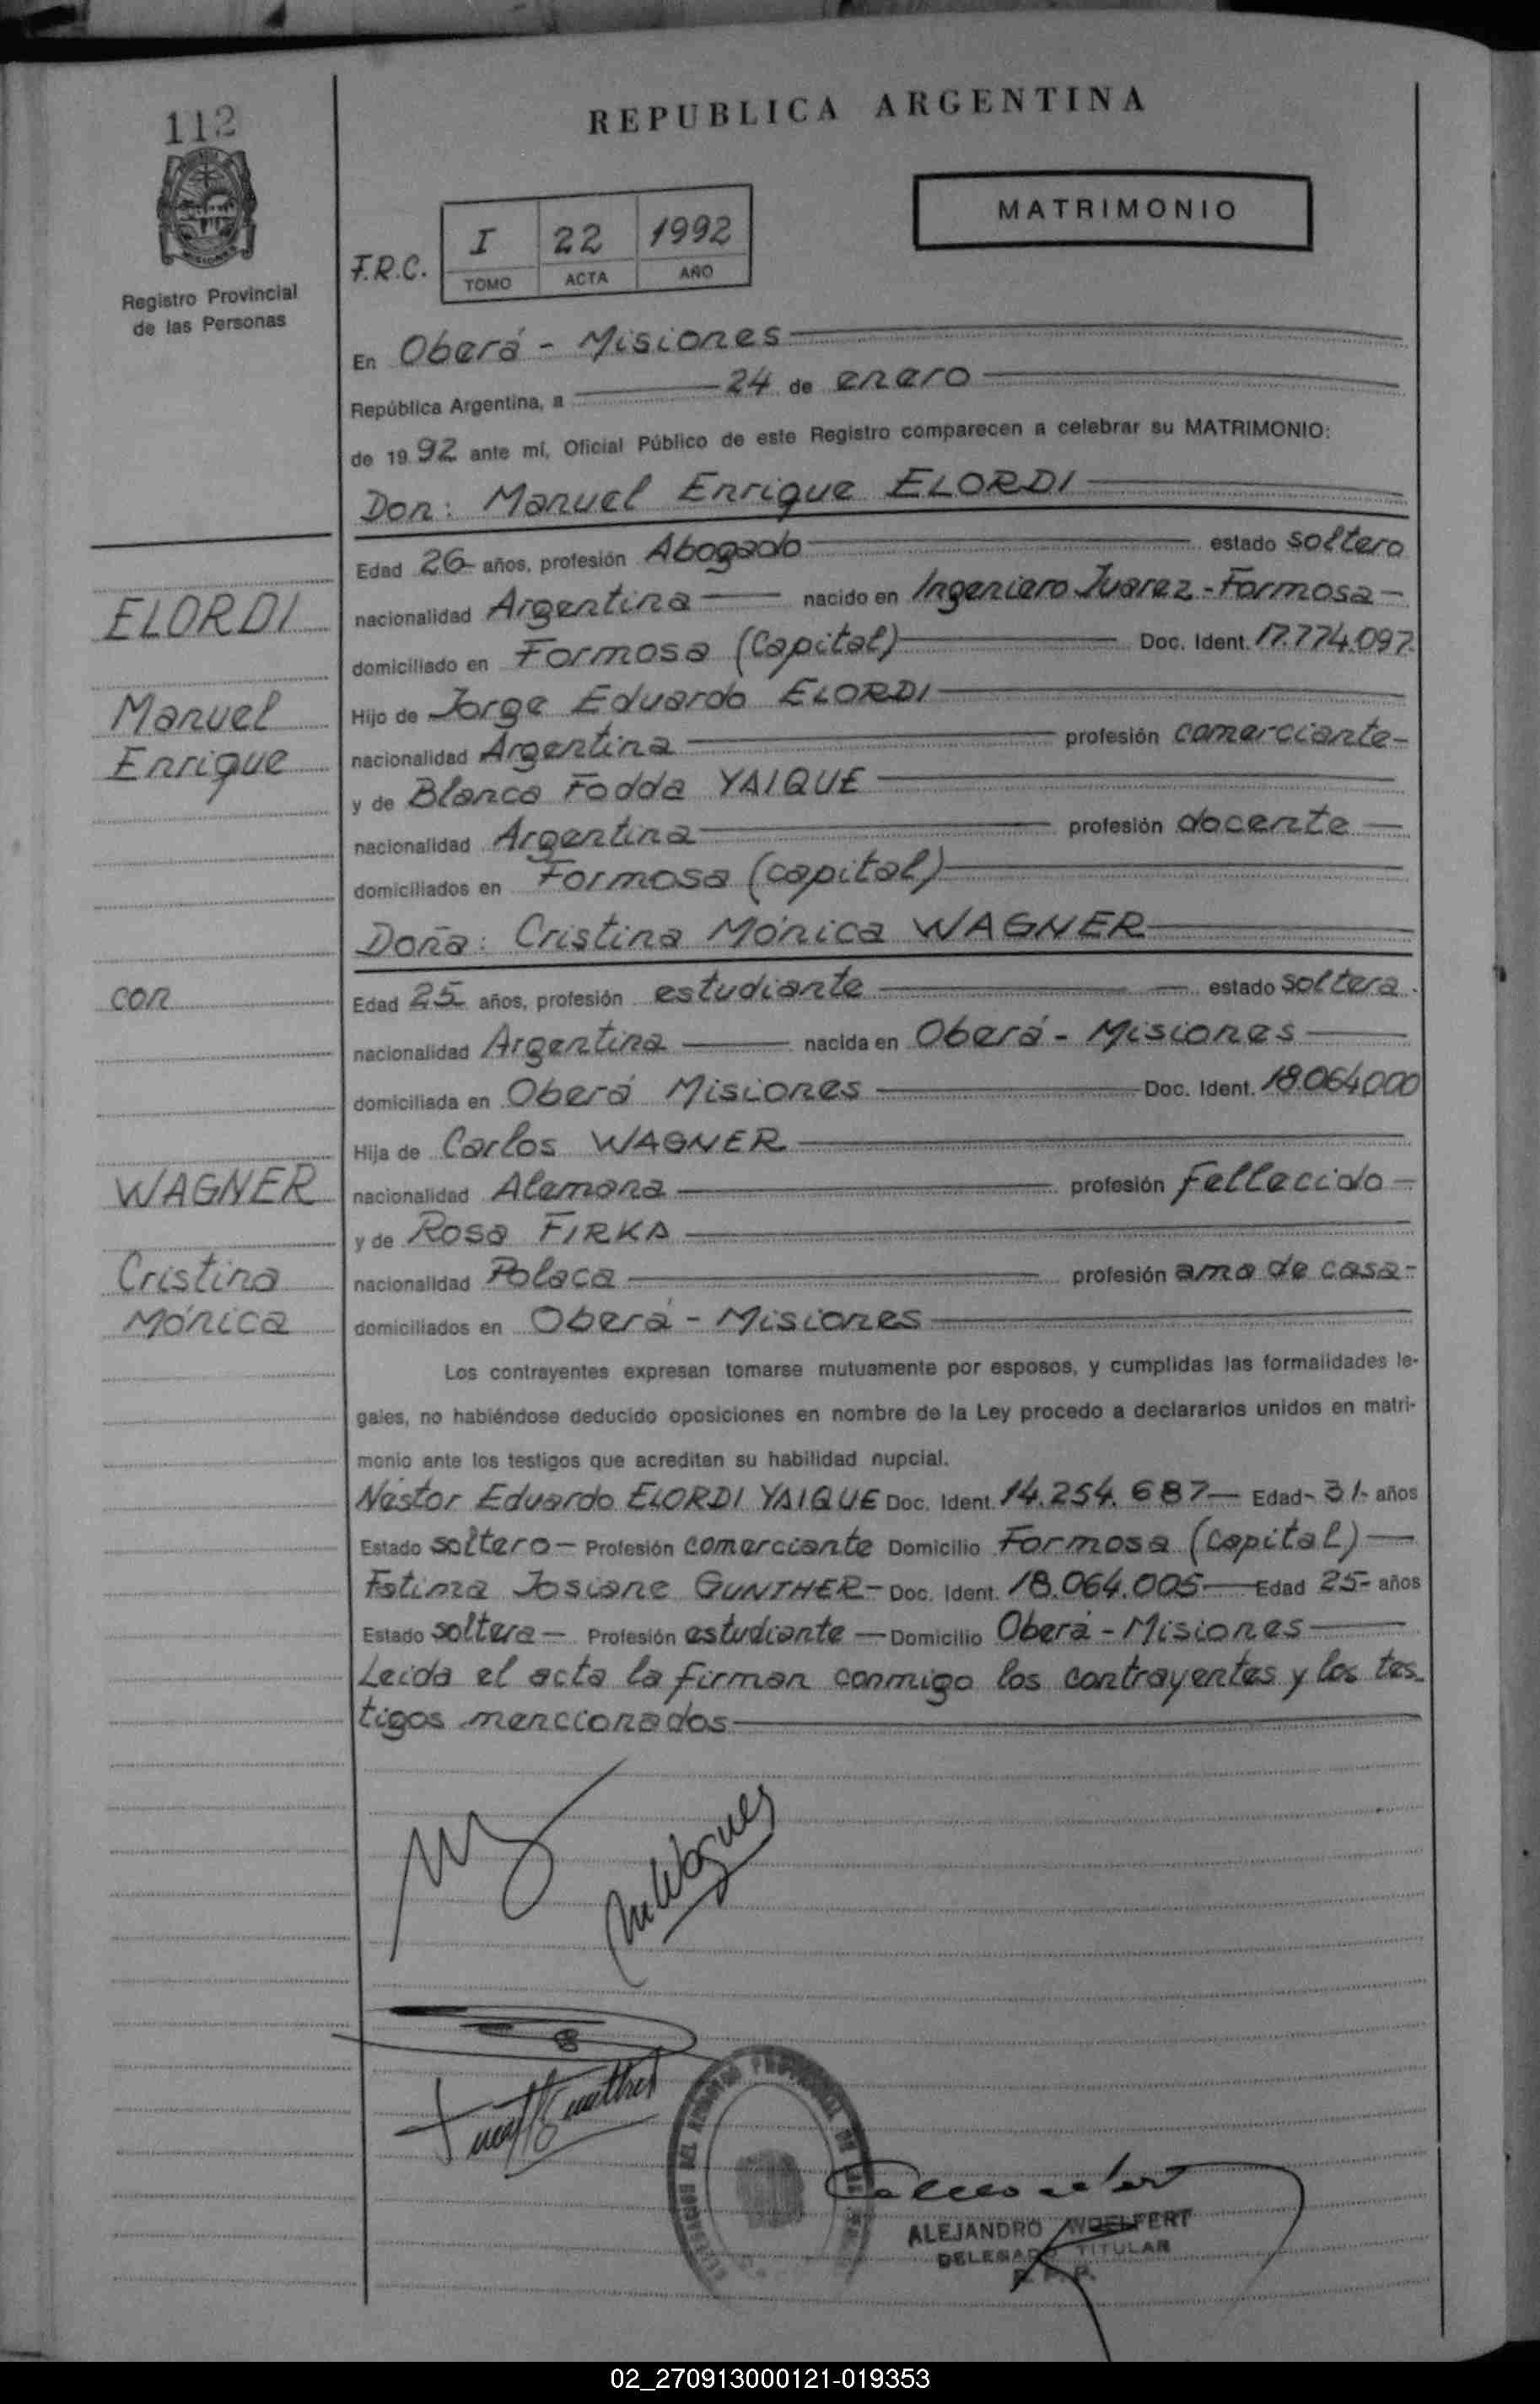 112
REPUBLICA ARGENTINA
MATRIMONIO
Registro Provincial
de las Personas
F.R.C. I 22 1992
TOMO ACTA AÑO
En Oberá - Misiones
República Argentina, a 24 de enero
de 1992 ante mí, Oficial Público de este Registro comparecen a celebrar su MATRIMONIO:
Don: Manuel Enrique ELORDI
Edad 26 años, profesión Abogado estado soltero
nacionalidad Argentina nacido en Ingeniero Juarez - Formosa
domiciliado en Formosa (Capital) Doc. Ident. 17.774.097
Hijo de Jorge Eduardo ELORDI
nacionalidad Argentina profesión comerciante
y de Blanca Fodda YAIQUE
nacionalidad Argentina profesión docente
domiciliados en Formosa (capital)
Doña: Cristina Mónica WAGNER
Edad 25 años, profesión estudiante estado soltera
nacionalidad Argentina nacida en Oberá - Misiones
domiciliada en Oberá Misiones Doc. Ident. 18.064.000
Hija de Carlos WAGNER
nacionalidad Alemana profesión Fellecido
y de Rosa FIRKA
nacionalidad Polaca profesión ama de casa
domiciliados en Oberá - Misiones
ELORDI
Manuel
Enrique
con
WAGNER
Cristina
Mónica
Los contrayentes expresan tomarse mutuamente por esposos, y cumplidas las formalidades le-
gales, no habiéndose deducido oposiciones en nombre de la Ley procedo a declararlos unidos en matri-
monio ante los testigos que acreditan su habilidad nupcial.
Néstor Eduardo ELORDI YAIQUE Doc. Ident. 14.254.687 Edad 31 años
Estado soltero Profesión comerciante Domicilio Formosa (capital)
Fatima Josiane GUNTHER Doc. Ident. 18.064.005 Edad 25 años
Estado soltera Profesión estudiante Domicilio Oberá - Misiones
Leida el acta la firman conmigo los contrayentes y los tes-
tigos mencionados
ALEJANDRO WOELFERT
DELEGADO TITULAR
R.P.P.
02_270913000121-019353